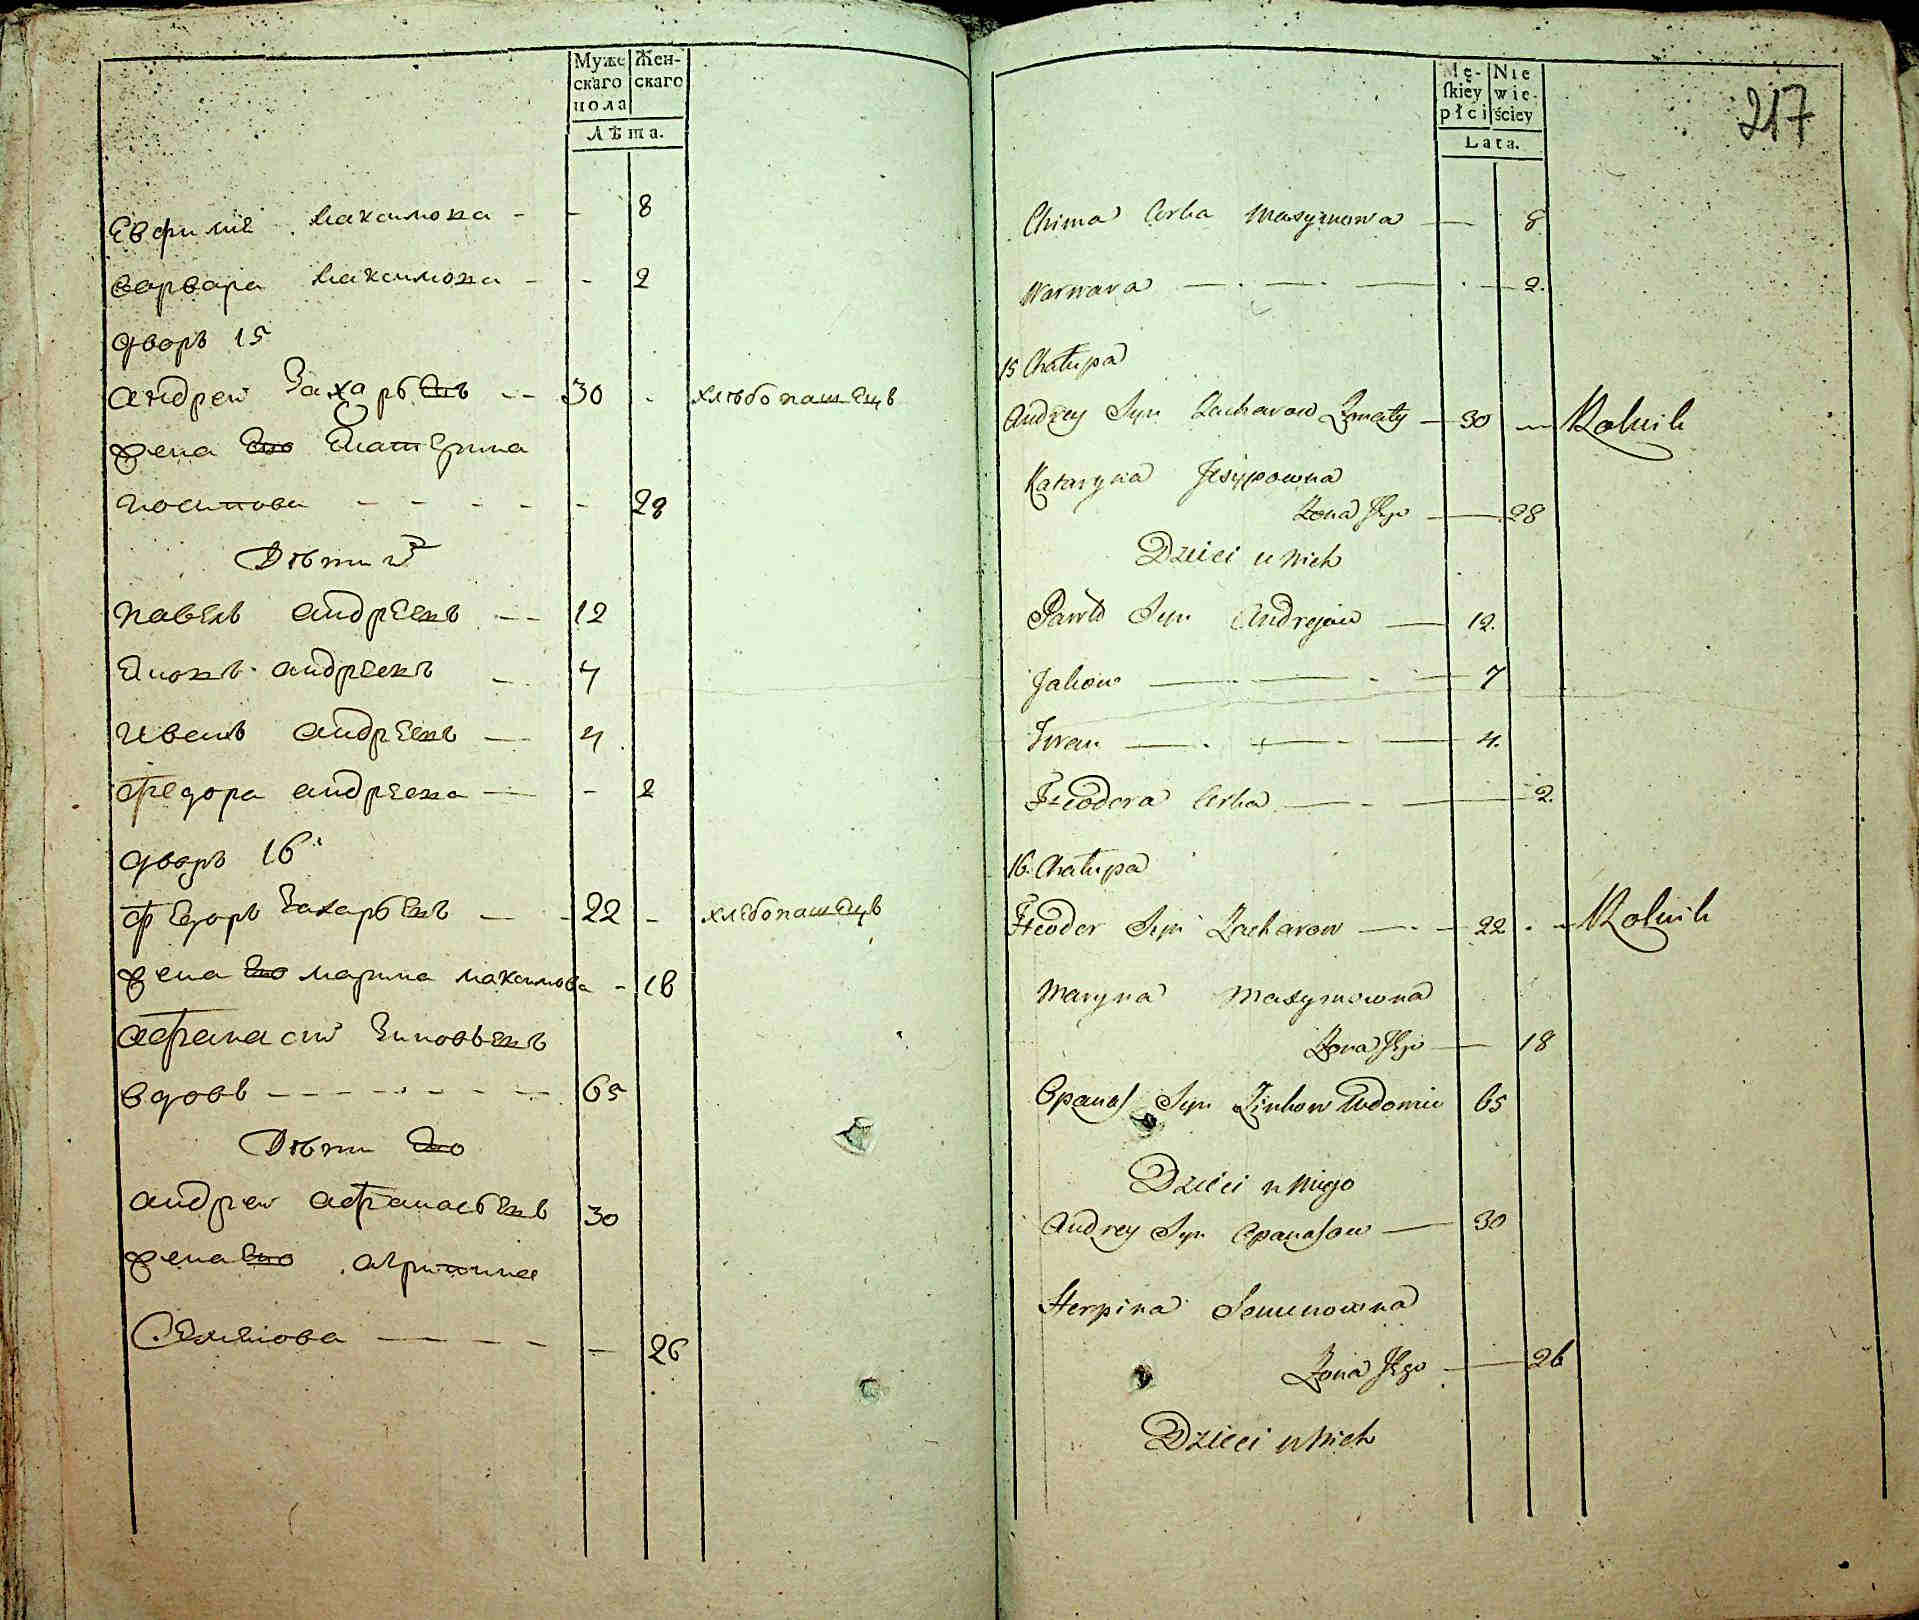 Муже Жен-
скаго скаго
пола
Лѣта.
Евфимiе Максимова - - 8
варвара Максимова - - 2
дворъ 15
андреи Захарьевъ - - 30 - хлѣбопашецъ
жена Его Екатерина
иосипова - - - - - 28
Дѣти ихъ
павелъ андреевъ - - 12
Яковъ андреевъ - 7
иванъ андреевъ - 4
федора андреева - - 2
дворъ 16
федоръ Захарьевъ - - 22 - хлебопашецъ
жена Его марина максимова - 18
афанасии Зиновьевъ
вдовъ - - - - - - 65
Дѣти Его
андреи афанасьевъ 30
жена Его агрипина
Семенова - - - - - 26
Mę- Nie
ſkiey wie-
płci ściey
Lata.
217
Chima Corka Maxymowa — 8
Warwara — . — . — . — 2.
15 Chałupa
Andrey Syn Zacharow Żonaty — 30 — Rolnik
Kataryna Jesypowna
Żona Jego — 28
Dzieci u nich
Paweł Syn Andrejow — 12.
Jakow — . — . — 7
Iwan — . — . — 4.
Fteodora Corka — . — 2.
16. Chałupa
Fteodor Syn Zacharow — . — 22 . — Rolnik
Maryna Maxymowna
Żona Jego — 18
Opanas Syn Zinkow Wdowiec 65
Dzieci u niego
Andrey Syn Opanasow — 30
Herpina Semenowna
Żona Jego — 26
Dzieci u nich